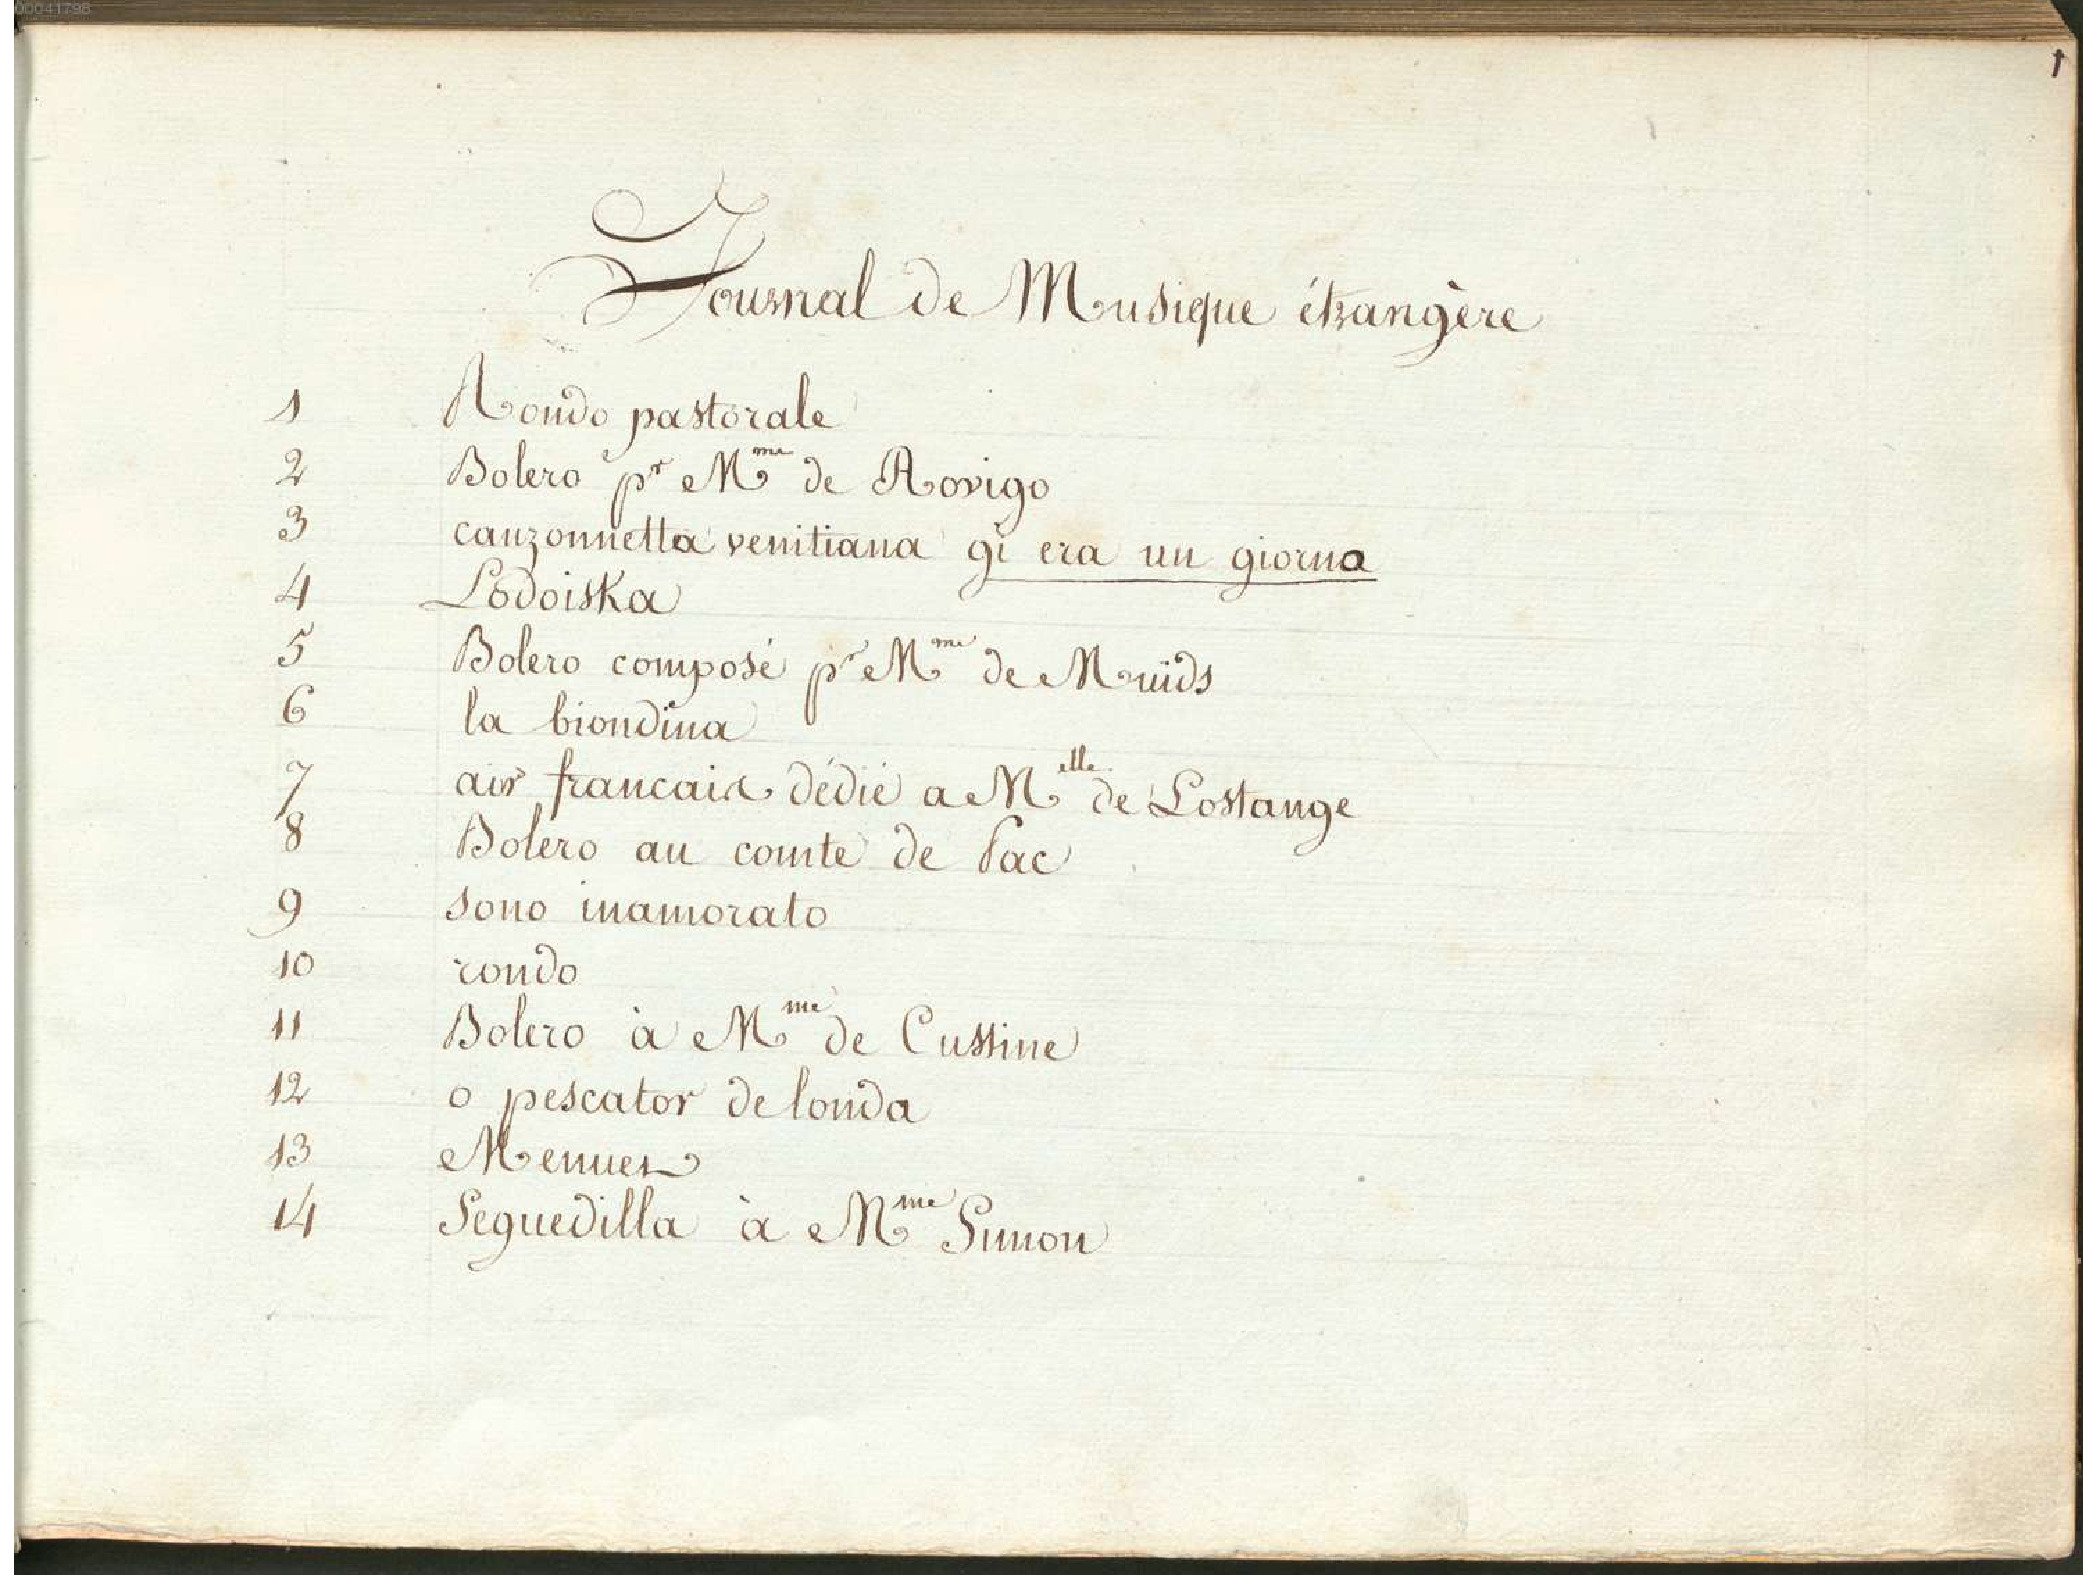 00041798
1
Journal de Musique étrangère
1 Rondo pastorale
2 Bolero pr Mme de Rovigo
3 canzonnetta venitiana gi era un giorno
4 Lodoiska
5 Bolero composé pr Mme de Muïds
6 la biondina
7 air francais dédié a Melle de Lostange
8 Bolero au comte de Pac
9 sono inamorato
10 rondo
11 Bolero à Mme de Custine
12 o pescator de londa
13 Menuet
14 Seguedilla à Mme Simon